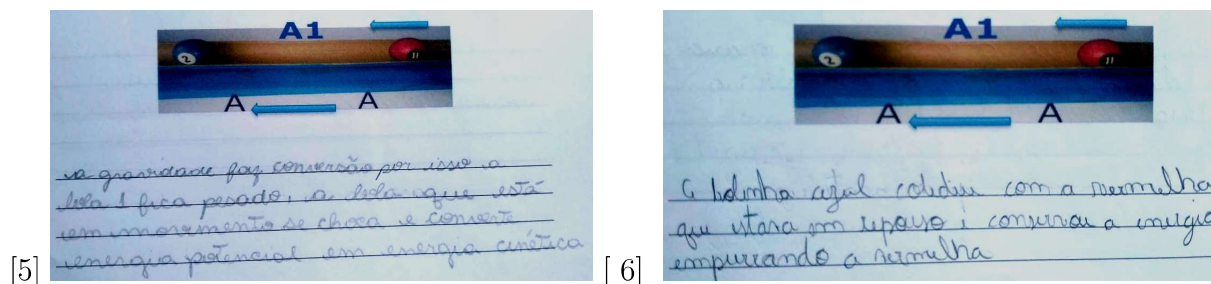 A1
2
11
A A
a gravidade faz conversão por isso a
bola 1 fica pesado, a bola que está
em movimento se choca e converte
energia potencial em energia cinética
[5]
A1
2
11
A A
a bolinha azul colidiu com a vermelha
que estava em repouso i conservou a energia
empurrando a vermelha
[ 6]